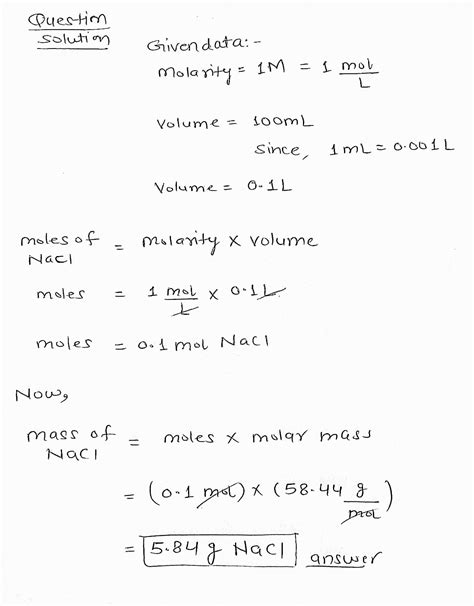 Question
solution
Given data:-
Molarity = 1M = 1 mol/L
Volume = 100mL
Since, 1mL = 0.001L
Volume = 0.1L
moles of NaCl = Molarity × Volume
moles = 1 mol/L × 0.1L
moles = 0.1 mol NaCl
Now,
mass of NaCl = moles × molar mass
= (0.1 mol) × (58.44 g/mol)
= 5.84 g NaCl answer